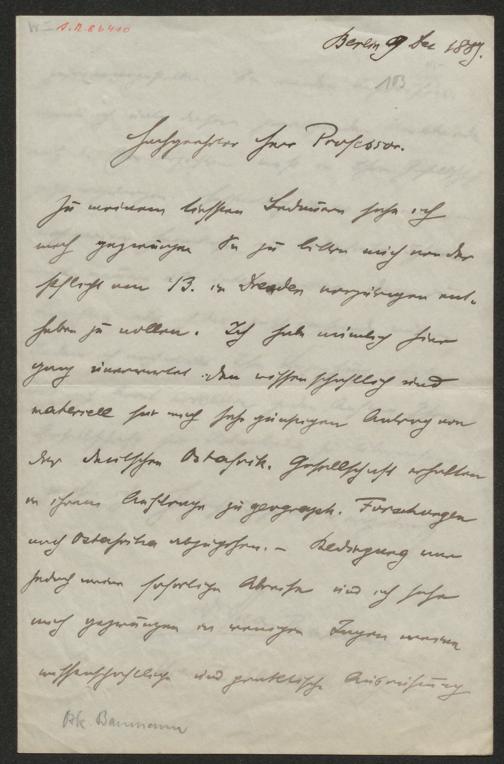 A.N. 86410
Berlin 9 Dec 1889.
183
Hochgeehrter Herr Professor.
Zu meinem tiefsten Bedauern sehe ich
mich gezwungen Sie zu bitten mich von der
Pflicht am 13. in Dresden vorzutragen ent-
heben zu wollen. Ich habe nämlich hier
ganz unerwartet den wissenschaftlich und
materiell für mich sehr günstigen Antrag von
der deutschen Ostafrik. Gesellschaft erhalten
in ihrem Auftrage zu geograph. Forschungen
nach Ostafrika abzugehen. – Bedingung war
jedoch meine sofortige Abreise und ich sehe
mich gezwungen in wenigen Tagen meine
wissenschaftliche und praktische Ausrüstung
Osk. Baumann